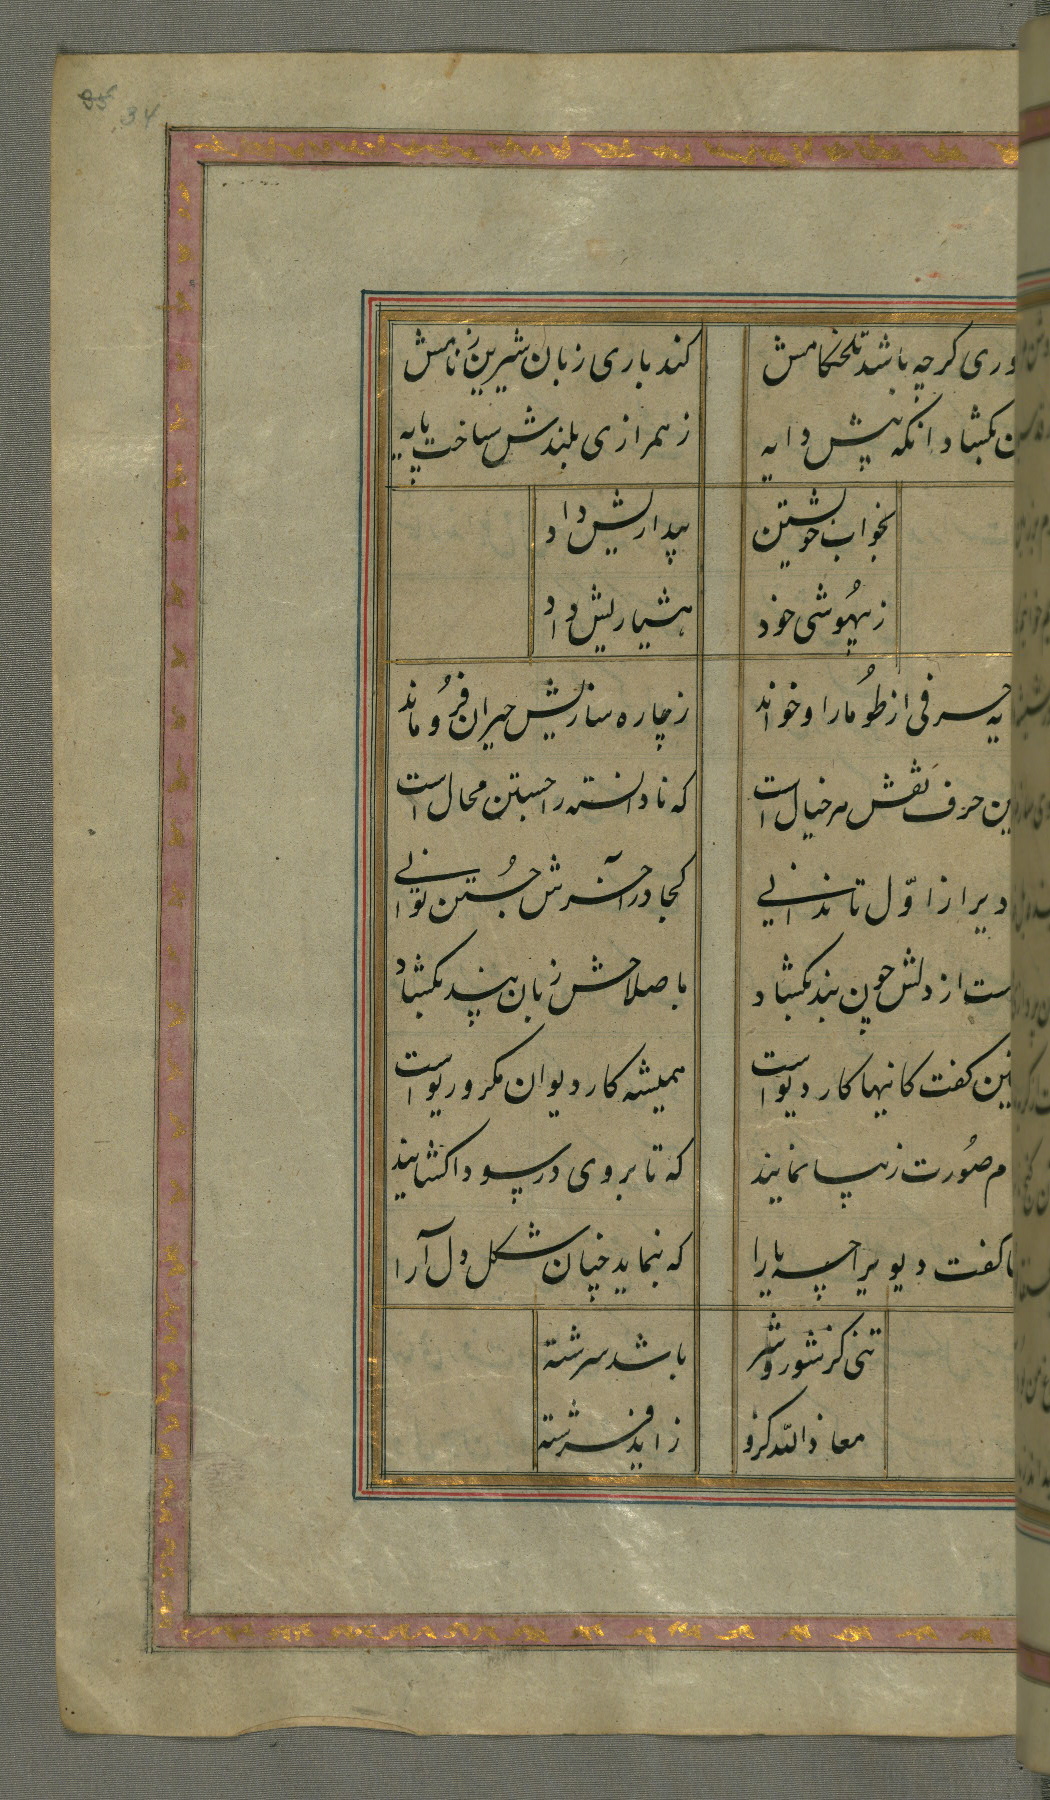 34
وری کرچه باشد تلخکامش کند باری زبان شیرین ز نامش
بکشاد انکه پیش دایه ز همرازی بلندش ساخت پایه
بخواب خویشتن بیداریش داد
ز بیهوشی خود هشیاریش داد
یه حرفی از طومار او خواند ز چاره سازیش حیران فرو ماند
ین حرف نقش هر خیال است که نادانسته را جستن محال است
دیرا ز اوّل تا ندانی کجا در آخرش جُستن توانی
ست از دلش چون بند بکشاد باصلاحش زبان پند بکشاد
نین کفت کاینها کار دیو است همیشه کار دیوان مکر و ریو است
م صُورت زیبا نمایند که تا بر وی در سودا کشایند
ا کفت دیویرا چه یارا که بنماید چنان شکل دل آرا
تنی کز شور و شر باشد سرشته
معاذ الله کزو زاید فرشته